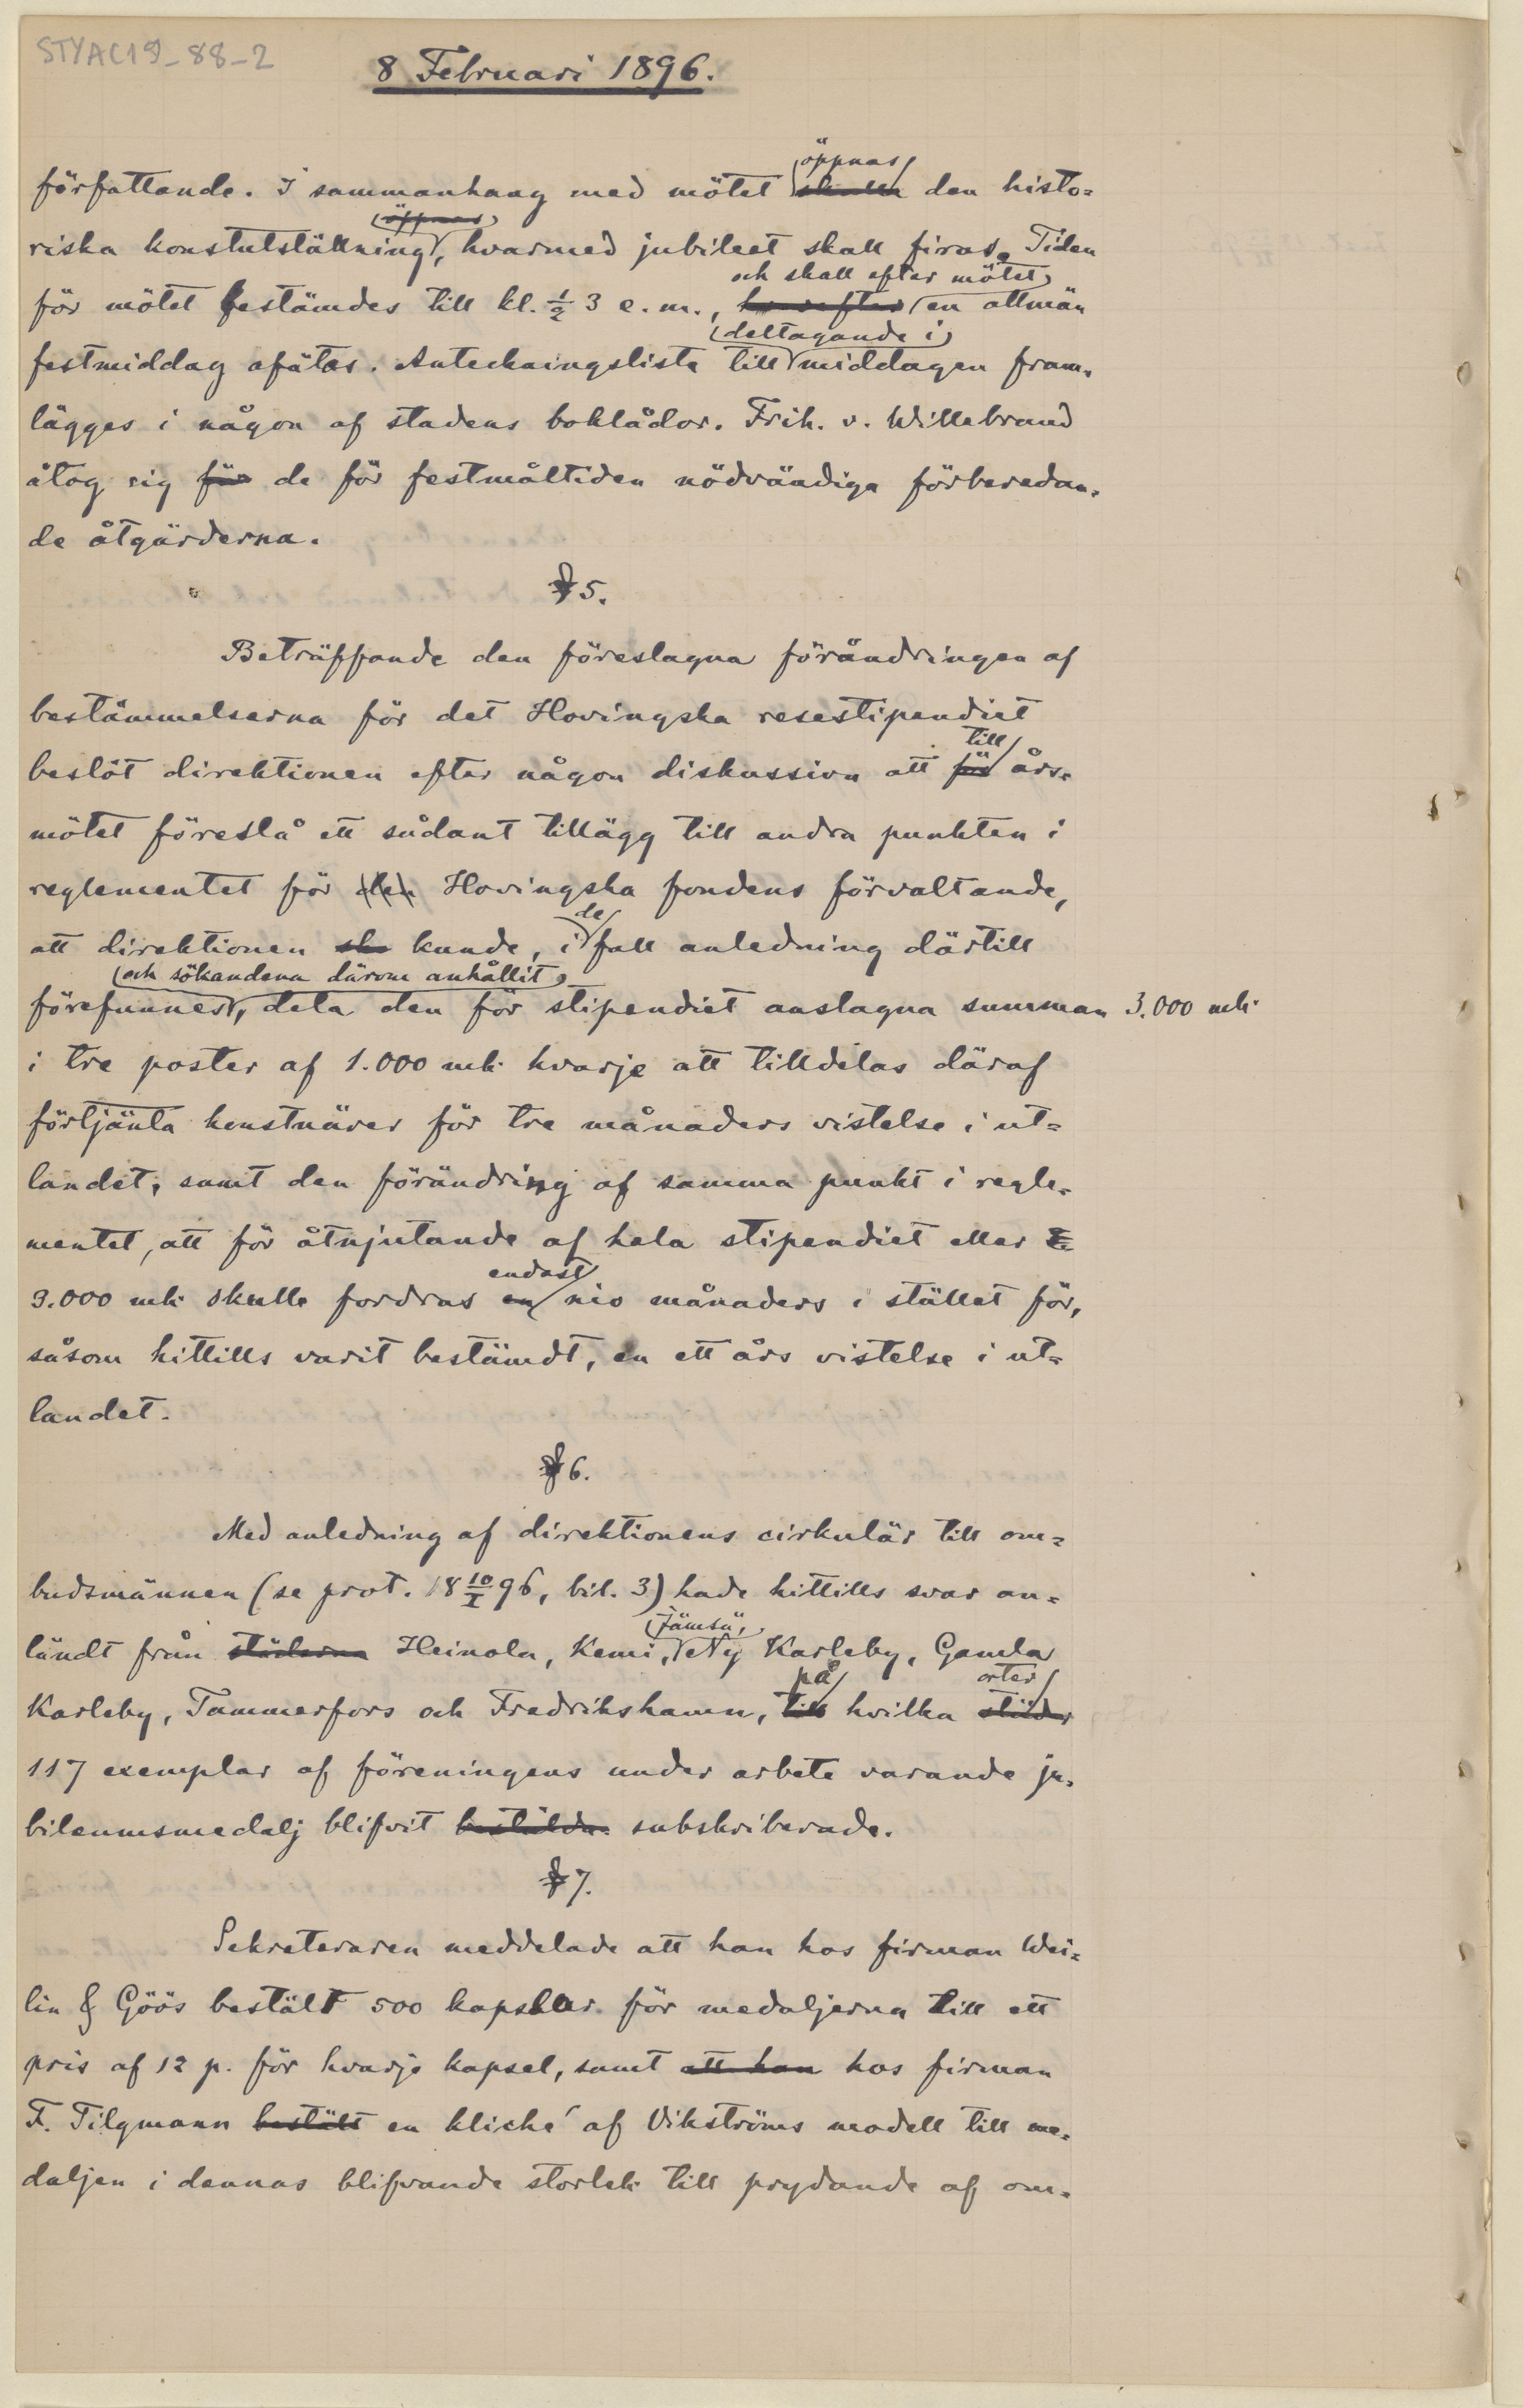 STYAC19_88-2
8 Februari 1896.
författande. I sammanhang med mötet öppnas den histo=
riska konstutställning, hvarmed jubileet skall firas. Tiden
för mötet bestämdes till kl. ½ 3 e. m., och skall efter mötet en allmän
festmiddag afätas. Anteckningslista till deltagande i middagen fram=
lägges i någon af stadens boklådor. Frih. v. Willebrand
åtog sig för de för festmåltiden nödvändiga förberedan=
de åtgärderna.
§ 5.
Beträffande den föreslagna förändringen af
bestämmelserna för det Hovingska resestipendiet
beslöt direktionen efter någon diskussion att för till års=
mötet föreslå ett sådant tillägg till andra punkten i
reglementet för den Hovingska fondens förvaltande,
att direktionen sku kunde, i de fall anledning därtill
förefunnes, och sökandena därom anhållit, dela den för stipendiet anslagna summan 3.000 mk
i tre poster af 1.000 mk hvarje att tilldelas däraf
förtjänta konstnärer för tre månaders vistelse i ut=
landet, samt den förändring af samma punkt i regle=
mentet, att för åtnjutande af hela stipendiet eller
3.000 mk skulle fordras en endast nio månaders i stället för,
såsom hittills varit bestämdt, en ett års vistelse i ut=
landet.
§ 6.
Med anledning af direktionens cirkulär till om=
budsmännen (se prot. 18 10/I 96, bil. 3) hade hittills svar an=
ländt från städerna Heinola, Kemi, Jämsä, Ny Karleby, Gamla
Karleby, Tammerfors och Fredrikshamn, till på hvilka städer orter
117 exemplar af föreningens under arbete varande ju=
bileumsmedalj blifvit bestälda subskriberade.
§ 7.
Sekreteraren meddelade att han hos firman Wei=
lin & Göös bestält 500 kapslar för medaljerna till ett
pris af 12 p. för hvarje kapsel, samt att han hos firman
F. Tilgmann bestält en kliché af Vikströms modell till me=
daljen i dennas blifvande storlek till prydande af om=